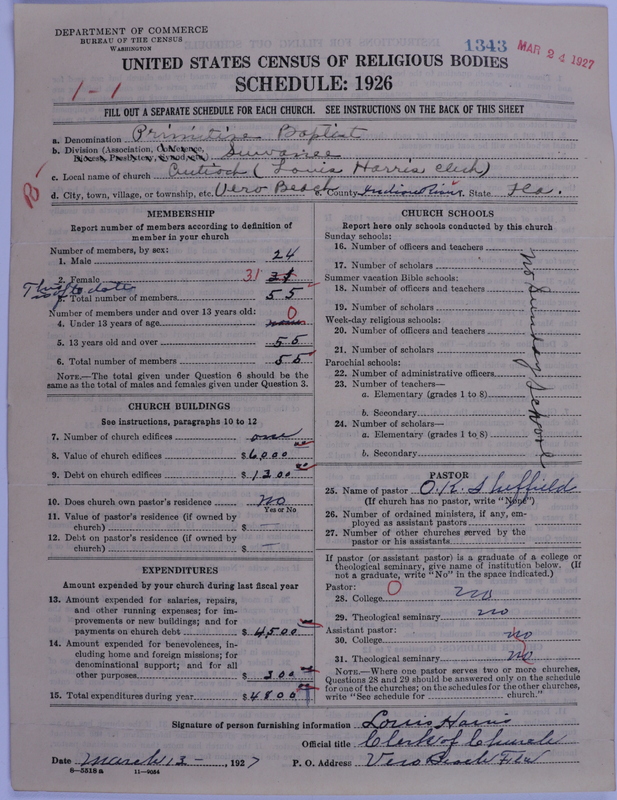 DEPARTMENT OF COMMERCE
BUREAU OF THE CENSUS
WASHINGTON
1343
MAR 24 1927
UNITED STATES CENSUS OF RELIGIOUS BODIES
SCHEDULE: 1926
1-1
FILL OUT A SEPARATE SCHEDULE FOR EACH CHURCH. SEE INSTRUCTIONS ON THE BACK OF THIS SHEET
a. Denomination Primitive Baptist
b. Division (Association, Conference, Diocese, Presbytery, Synod, etc.) Suwannee
c. Local name of church Antioch (Louis Harris clerk)
d. City, town, village, or township, etc. Vero Beach e. County Indian River f. State Fla.
MEMBERSHIP
Report number of members according to definition of
member in your church
Number of members, by sex:
1. Male 24
2. Female 31
3. Total number of members 55
Number of members under and over 13 years old:
4. Under 13 years of age 0
5. 13 years old and over 55
6. Total number of members 55
NOTE.—The total given under Question 6 should be
the same as the total of males and females given under Question 3.
CHURCH BUILDINGS
See instructions, paragraphs 10 to 12
7. Number of church edifices one
8. Value of church edifices $6000
9. Debt on church edifices $1300
10. Does church own pastor's residence No
Yes or No
11. Value of pastor's residence (if owned by
church) $ —
12. Debt on pastor's residence (if owned by
church) $ —
EXPENDITURES
Amount expended by your church during last fiscal year
13. Amount expended for salaries, repairs,
and other running expenses; for im-
provements or new buildings; and for
payments on church debt $4500
14. Amount expended for benevolences, in-
cluding home and foreign missions; for
denominational support; and for all
other purposes $300
15. Total expenditures during year $4800
CHURCH SCHOOLS
Report here only schools conducted by this church
Sunday schools:
16. Number of officers and teachers
17. Number of scholars
Summer vacation Bible schools:
18. Number of officers and teachers
19. Number of scholars
Week-day religious schools:
20. Number of officers and teachers
21. Number of scholars
Parochial schools:
22. Number of administrative officers
23. Number of teachers—
a. Elementary (grades 1 to 8)
b. Secondary
24. Number of scholars—
a. Elementary (grades 1 to 8)
b. Secondary
No Sunday School
PASTOR
25. Name of pastor O.K. Sheffield
(If church has no pastor, write "None")
26. Number of ordained ministers, if any, em-
ployed as assistant pastors
27. Number of other churches served by the
pastor or his assistants
If pastor (or assistant pastor) is a graduate of a college or
theological seminary, give name of institution below. (If
not a graduate, write "No" in the space indicated.)
Pastor:
28. College 0 no
29. Theological seminary no
Assistant pastor:
30. College no
31. Theological seminary no
NOTE.—Where one pastor serves two or more churches,
Questions 28 and 29 should be answered only on the schedule
for one of the churches; on the schedules for the other churches,
write "See schedule for church."
Signature of person furnishing information Louis Harris
Official title Clerk of Church
Date March 13-, 1927 P. O. Address Vero Beach Fla
8—5518a 11—9064